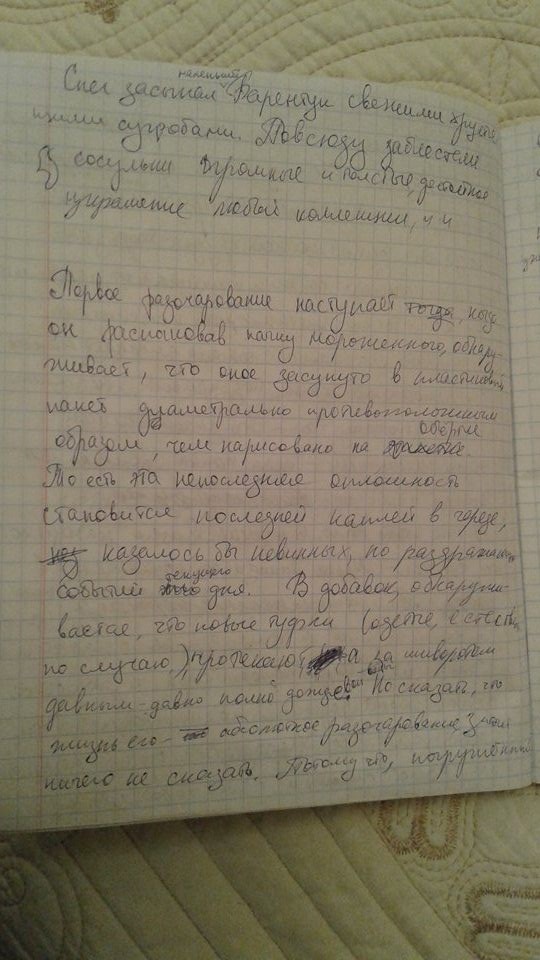 маленький
Снег засыпал Парентук свежими хрустя
щими сугробами. Повсюду заблестели
сосульки огромные и толстые, достойное
украшение любой коллекции, и и
Первое разочарование наступает тогда, когда
он распаковав пачку мороженного, обнару-
живает, что оное засунуто в пластиковый
пакет диаметрально противоположным
обертке
образом, чем нарисовано на
То есть эта непоследняя оплошность
становится последней каплей в череде,
казалось бы невинных, но раздражающих
текущего
событий его дня. В добавок, обнаружи-
вается, что новые туфли (одетые, естеств
по случаю,) протекают а за шиворотом
давным-давно полно дождевой Но сказать, что
жизнь его - абсолютное разочарование, значит
ничего не сказать. Потому что,